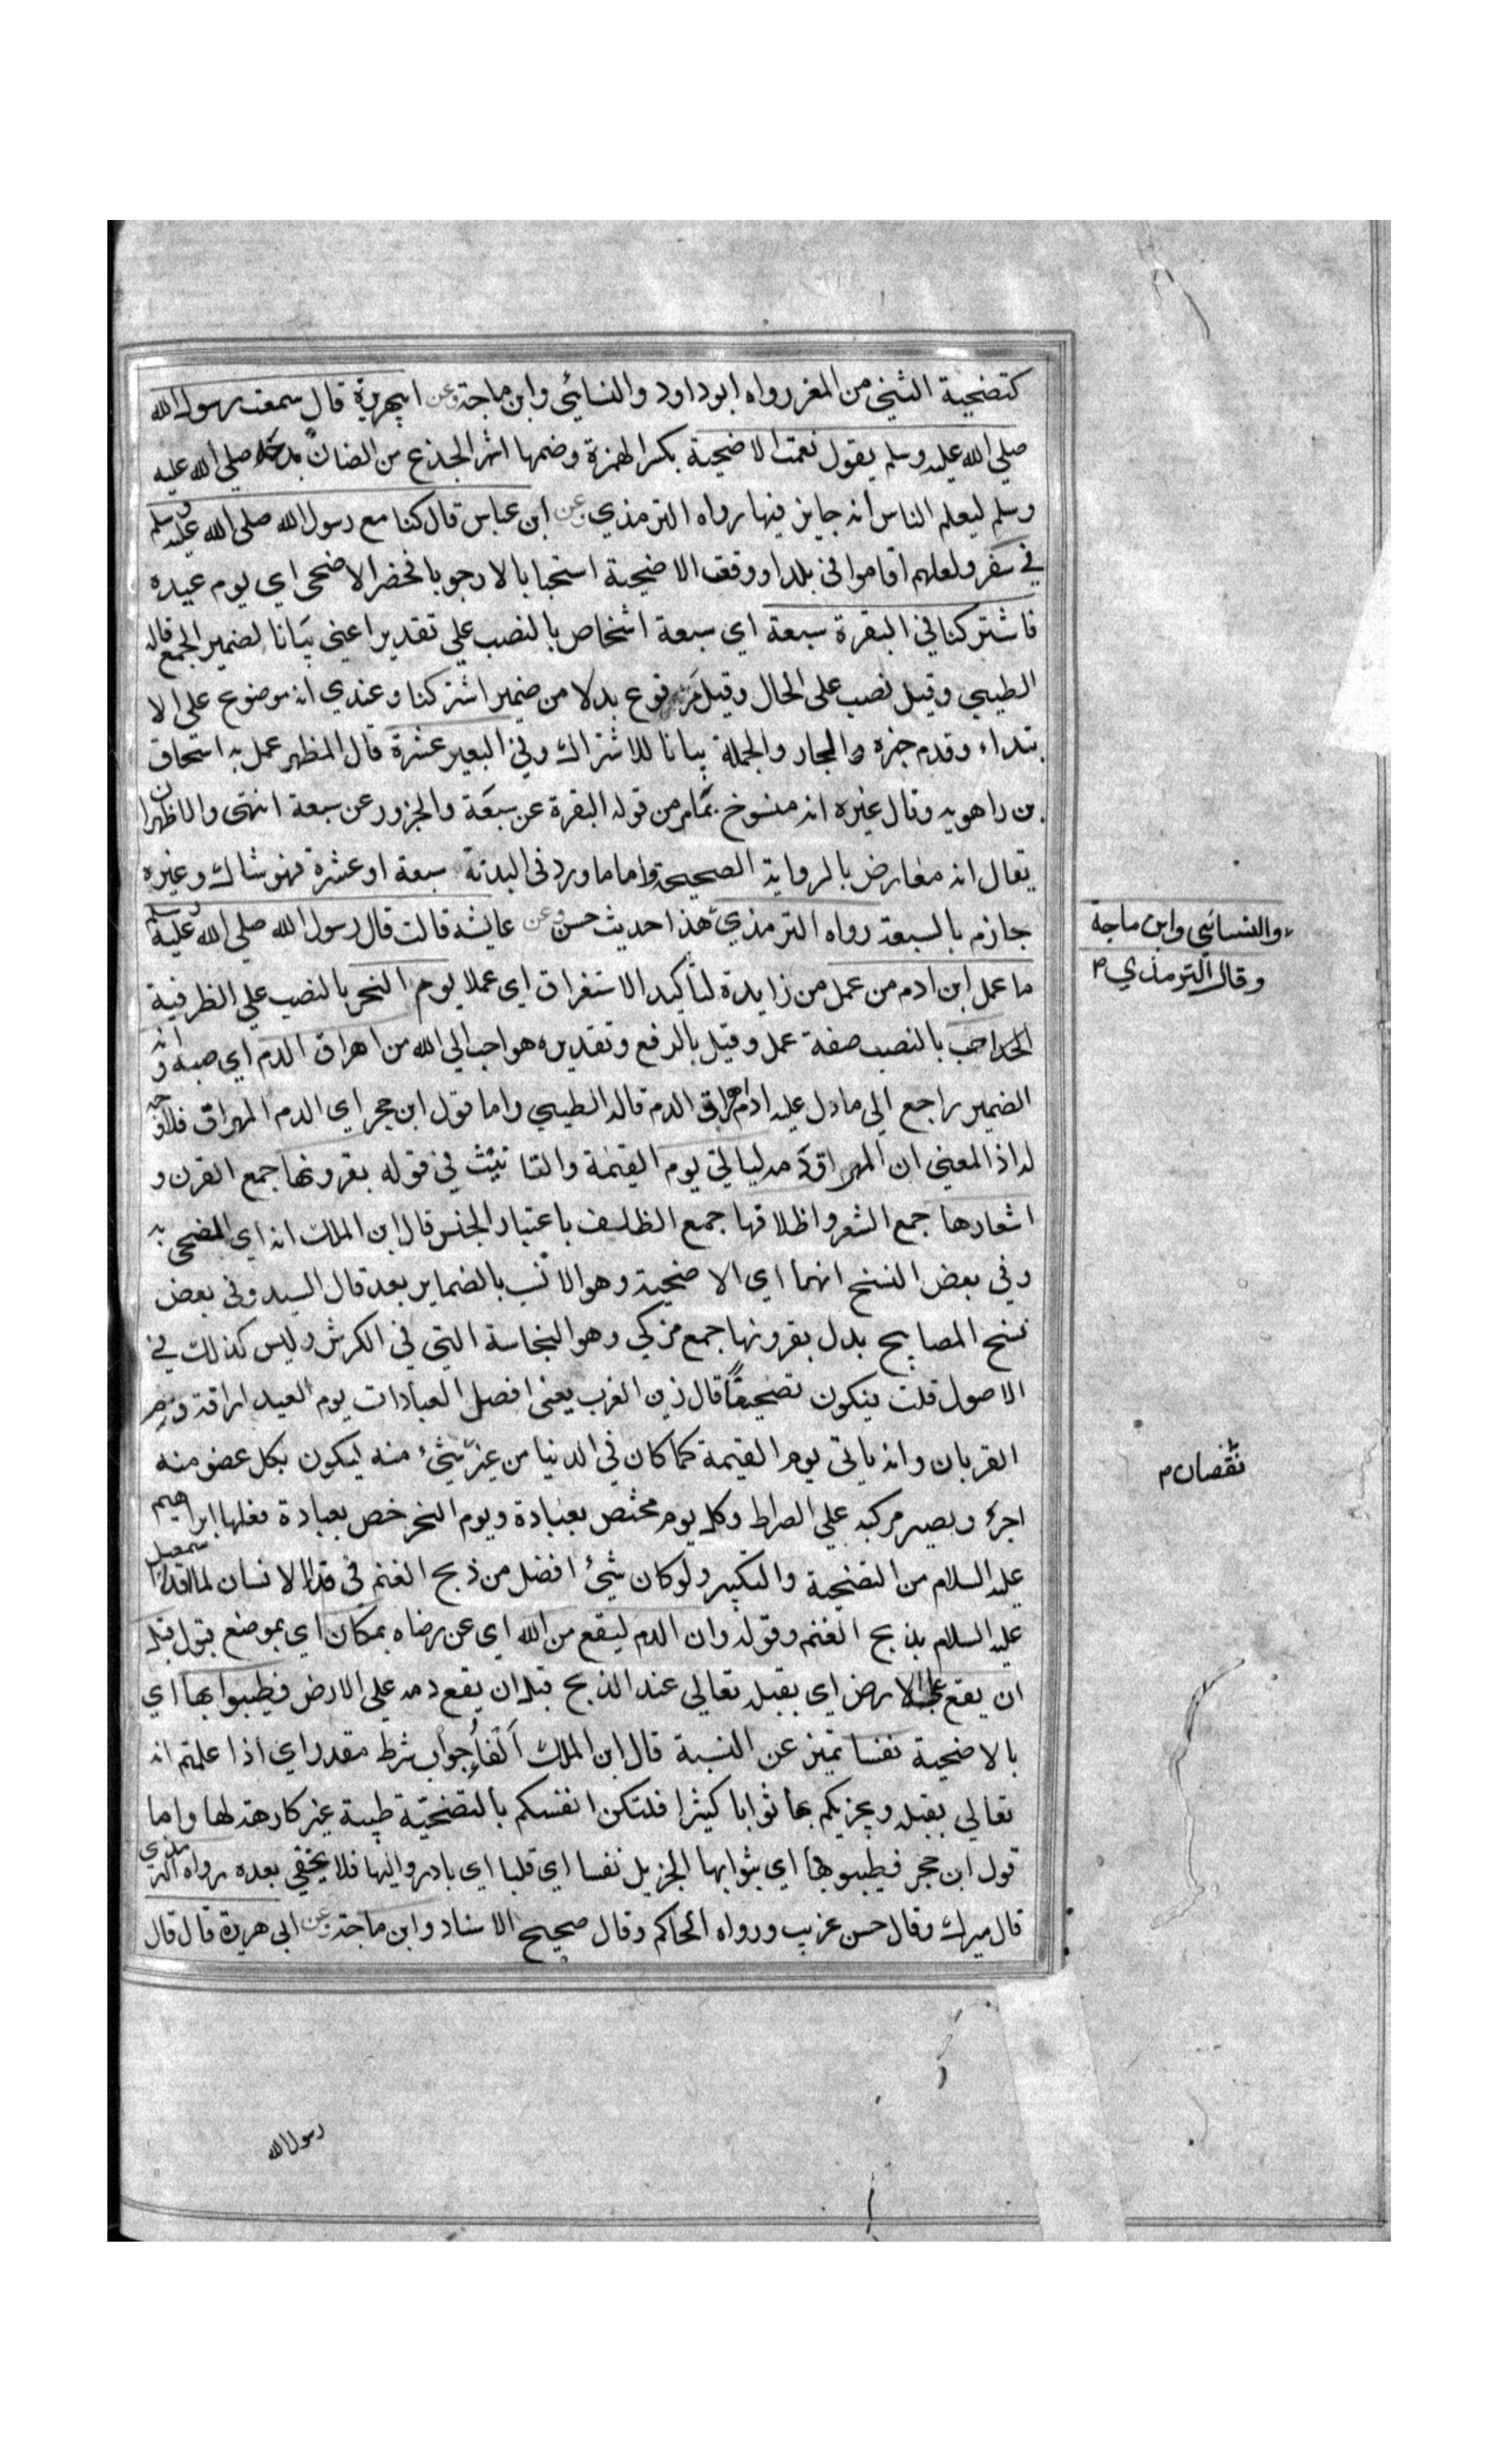 كتضحية الثني من المعز رواه ابو داود والنسائي وابن ماجة وعن ابيهريرة قال سمعت رسول الله
صلي الله عليه وسلم يقول نعمت الاضحية بكسر الهمزة وضمها اثر الجذع من الضان مدحه صلي الله عليه
وسلم ليعلم الناس انه جايز فيها رواه الترمذي وعن ابن عباس قال كنا مع رسول الله صلي الله عليه وسلم
في سفر ولعلهم اقاموا في بلد او وقعت الاضحية استحبابا لا وجوبا فحضر الاضحى اي يوم عيده
فاشتركنا في البقرة سبعة اي سبعة اشخاص بالنصب علي تقدير اعني بيانا لضمير الجمع قاله
الطيبي وقيل نصب على الحال وقيل مرفوع بدلا من ضمير اشتركنا وعندي انه موضوع على الا
بتداء وقدم خبره والجار والجملة بيانا للاشتراك وفي البعير عشرة قال المظهر عمل به اسحاق
بن راهويه وقال غيره انه منسوخ بمامر من قوله البقرة عن سبعة والجزور عن سبعة انتهى والاظهر ان
يقال انه معارض بالرواية الصحيحة واما ما ورد في البدنة سبعة او عشرة فهو شاك وغيره
جازم بالسبعة رواه الترمذي هذا حديث حسن وعن عايشه قالت قال رسول الله صلي الله عليه وسلم
والنسائي وابن ماجة
وقال الترمذي م
ما عمل ابن ادم من عمل من زايدة لتأكيد الاستغراق اي عملا يوم النحر بالنصب علي الظرفية
احب بالنصب صفة عمل وقيل بالرفع وتقديره هو احب الي الله من اهراق الدم اي صبه وانه
الضمير راجع الي ما دل عليه اهراق الدم قاله الطيبي واما قول ابن حجر اي الدم المهراق فلا وجه
له اذ المعني ان المهراق دمه لياتي يوم القيمة والتانيث في قوله بقرونها جمع القرن و
اشعارها جمع الشعر واظلافها جمع الظلف باعتبار الجنس قال ابن الملك انه اي المضحى به
وفي بعض النسخ انها اي الاضحية وهو الانسب بالضماير بعد قال السيد وفي بعض
نسخ المصابيح بدل بقرونها جمع وهو النجاسة التي في الكرش وليس كذلك في
الاصول قلت فيكون تصحيفا قال زين العرب يعني افضل العبادات يوم العيد اراقة دم
القربان وانه ياتي يوم القيمة كما كان في الدنيا من غير شيء منه ليكون بكل عضو منه
نقصان م
اجر ويصير مركبه علي الصراط وكل يوم مختص بعبادة ويوم النحر خص بعبادة فعلها ابراهيم
عليه السلام من التضحية والتكبير ولو كان شيئ افضل من ذبح الغنم في فداء الانسان لما فدي اسمعيل
عليه السلام بذبح الغنم وقوله وان الدم ليقع من الله اي عن رضاه بمكان اي بموضع قبول قبل
ان يقع علي الارض اي يقبله تعالي عند الذبح قبل ان يقع دمه علي الارض فطيبوا بها اي
بالاضحية نفسا تميز عن النسبة قال ابن الملك الفاء جواب شرط مقدر اي اذا علمتم انه
تعالي يقبله ويجزيكم بها ثوابا كثيرا فلتكن انفسكم بالتضحية طيبة غير كارهة لها واما
قول ابن حجر فطيبوا بها اي بثوابها الجزيل نفسا اي قلبا اي بادروا اليها فلا يخفي بعده رواه الترمذي
قال ميرك وقال حسن غريب ورواه الحاكم وقال صحيح الاسناد وابن ماجة وعن ابي هريرة قال قال
رسول الله